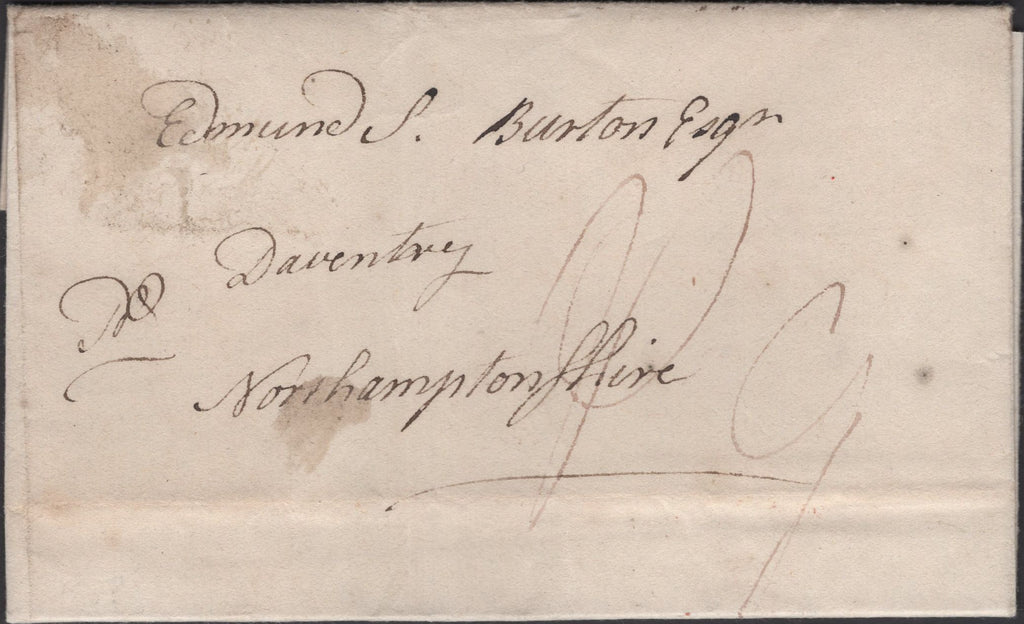 Edmund S. Burton Esqr
Daventry
Pd
Northamptonshire